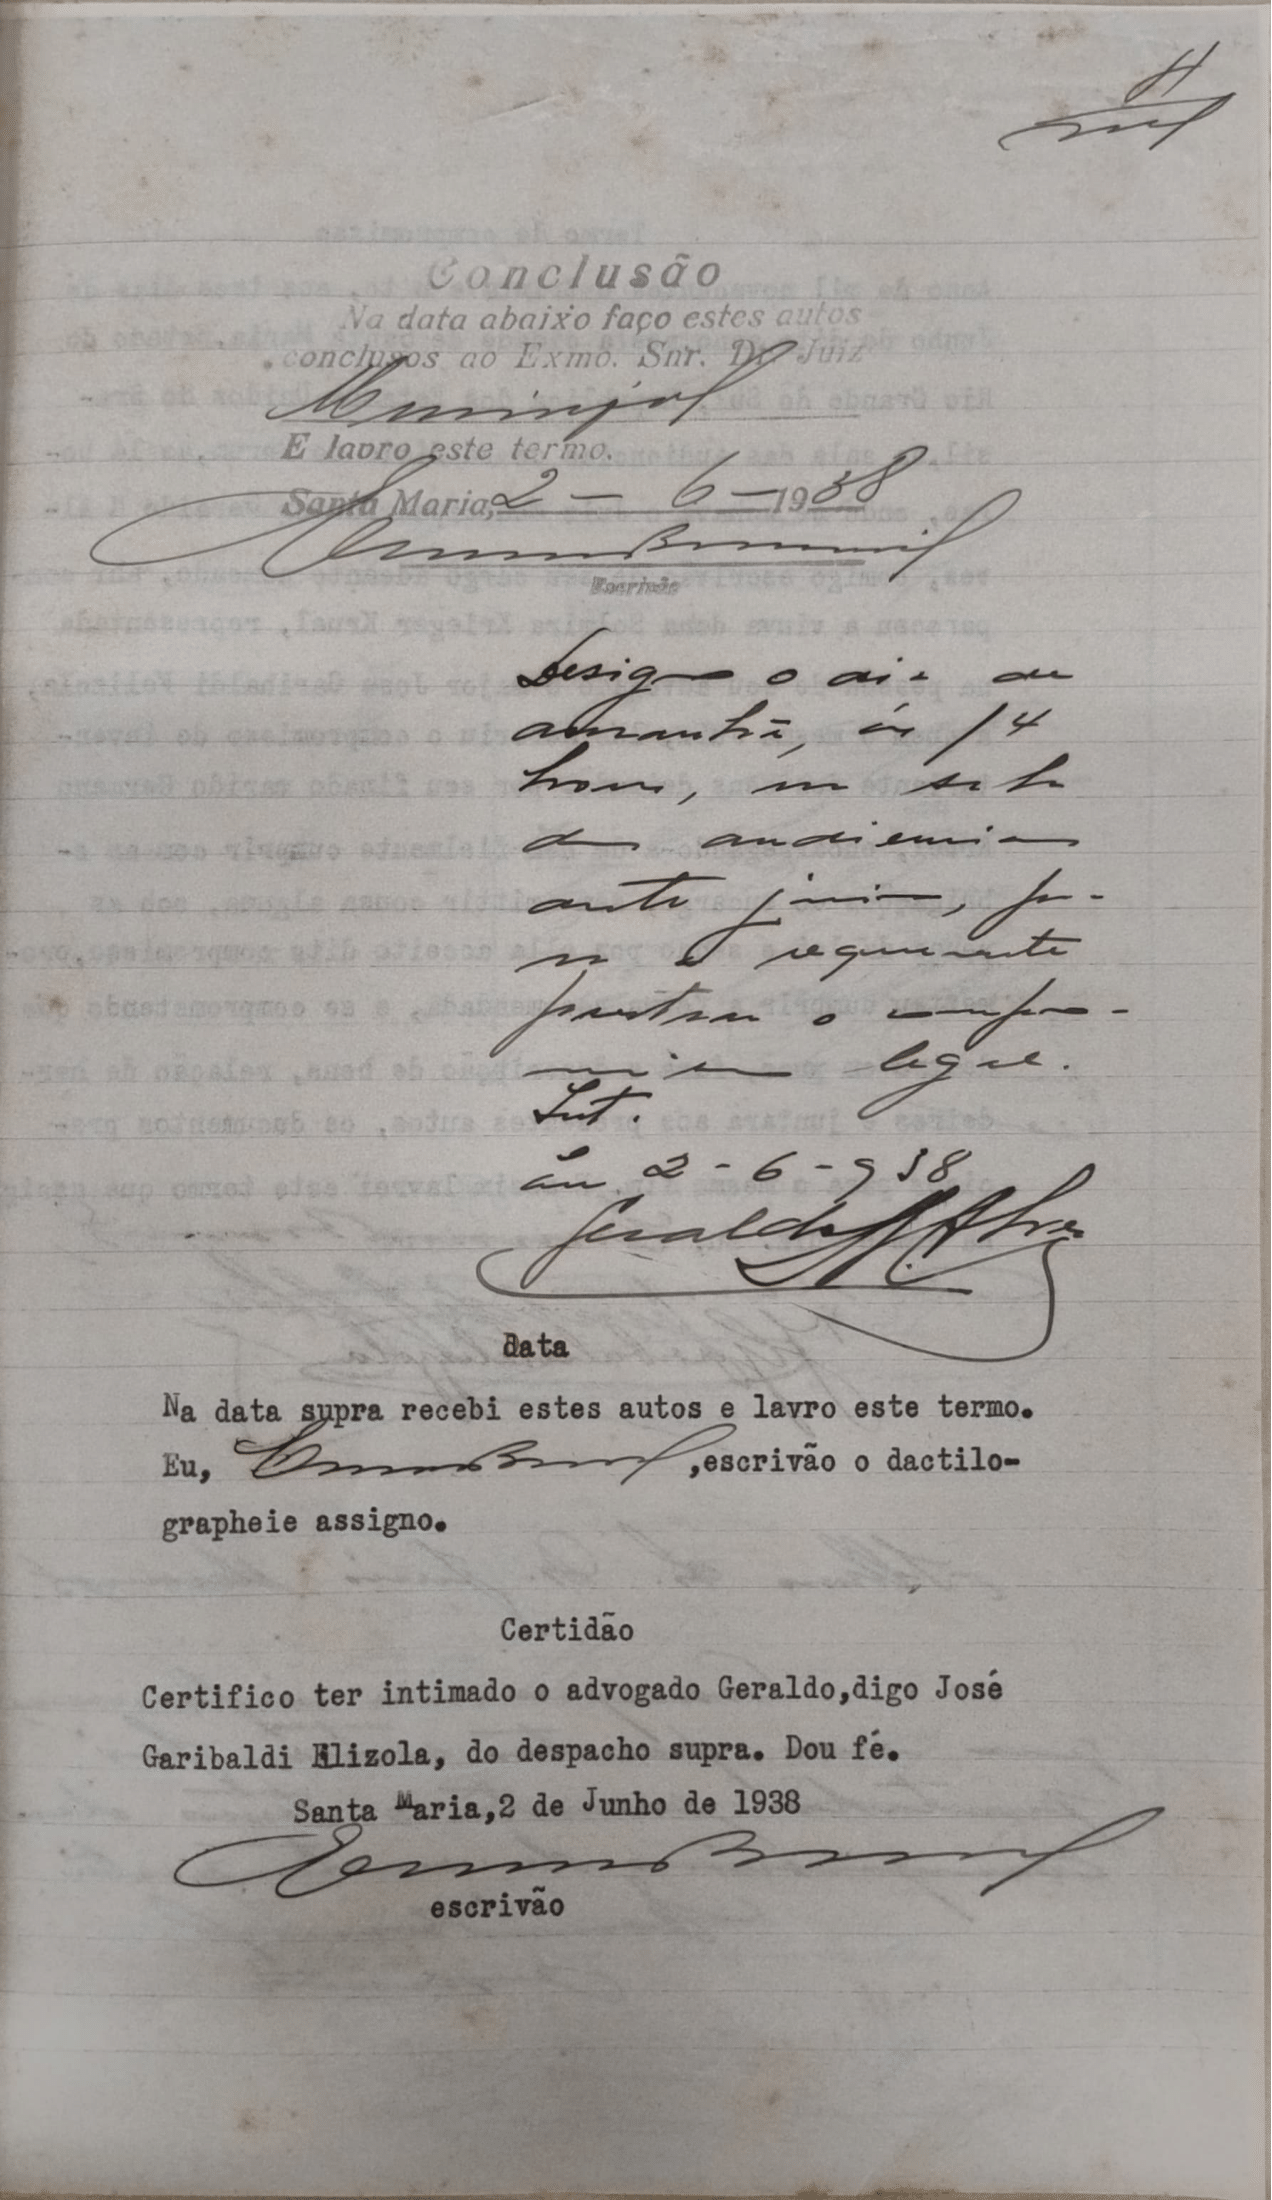 4
Conclusão
Na data abaixo faço estes autos
conclusos ao Exmo. Snr. Dr. Juiz
Municipal
E lavro este termo.
Santa Maria, 2 - 6 - 1938
Escrivão
Designo o dia de
amanhã, ás 14
horas, na sala
das audiencias
deste juizo, pa-
ra a requerente
prestar o compro-
misso legal.
Int.
Em 2-6-938
Geraldo Alves
data
Na data supra recebi estes autos e lavro este termo.
Eu, ,escrivão o dactilo-
grapheie assigno.
Certidão
Certifico ter intimado o advogado Geraldo,digo José
Garibaldi Elizola, do despacho supra. Dou fé.
Santa Maria,2 de Junho de 1938
escrivão